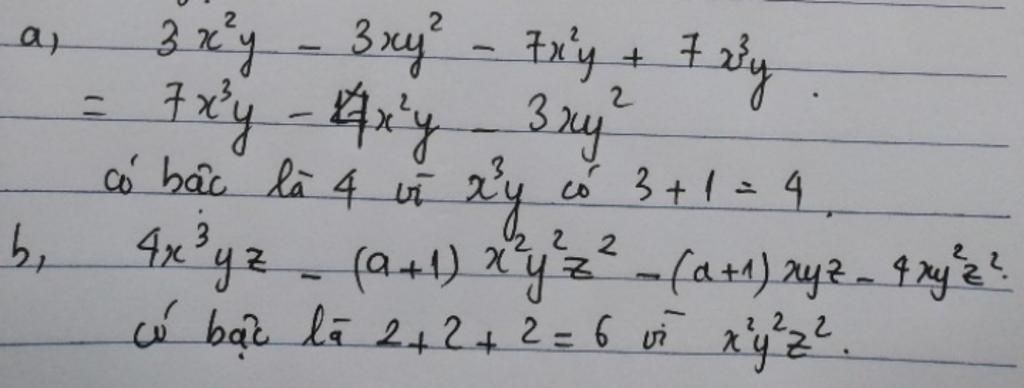 a, 3x²y - 3xy² - 7x²y + 7x³y.
= 7x³y - 4x²y - 3xy²
có bậc là 4 vì x³y có 3+1=4.
b, 4x³yz - (a+1) x²y²z² - (a+1) xyz - 4xy²z².
có bậc là 2+2+2=6 vì x²y²z².